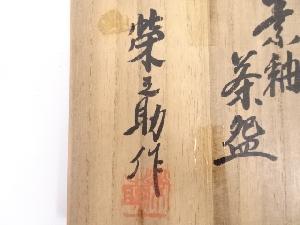 素釉
茶盌
榮之助作